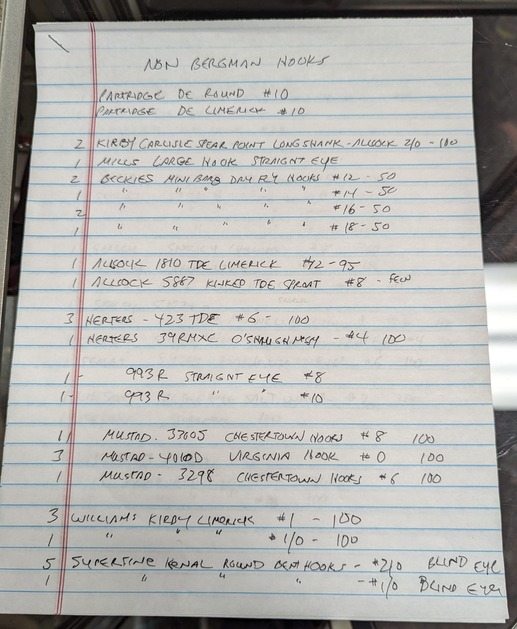 NON BERGMAN HOOKS
PARTRIDGE DE ROUND #10
PARTRIDGE DE LIMERICK #10
2 KIRBY CARLISLE SPEAR POINT LONG SHANK - ALLOCK 2/0 - 100
1 MILLS LARGE HOOK STRAIGHT EYE
2 BECKIES MINI BARB DRY FLY HOOKS #12 - 50
1 " " " " #14 - 50
2 " " " " #16 - 50
1 " " " " #18 - 50
1 ALLCOCK 1810 TDE LIMERICK #12 - 95
1 ALLOCK 5887 KINKED TDE SPROAT #8 - FEW
3 HERTERS - 423 TDE #6 - 100
1 HERTERS O'SHAUGHNESSY - #4 100
1 - 993R STRAIGHT EYE #8
1 - 993R " " #10
11 MUSTAD. 33605 CHESTERTOWN HOOKS #8 100
3 MUSTAD - 4010D VIRGINIA HOOK #0 100
1 MUSTAD - 3298 CHESTERTOWN HOOKS #6 100
3 WILLIAMS KIRBY LIMERICK #1 - 100
1 " " " #1/0 - 100
5 SUPERFINE KENAL ROUND BENT HOOKS - #2/0 BLIND EYE
1 " " " - #1/0 BLIND EYE